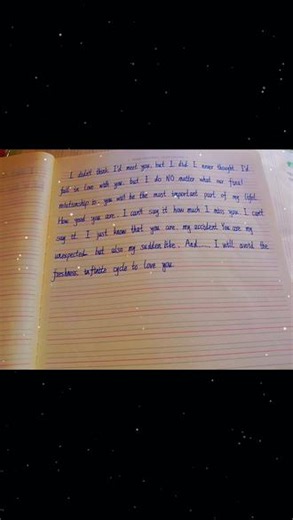 I didn't think I'd meet you, but I did. I never thought I'd
fall in love with you, but I do. NO matter what our final
relationship is, you will be the most important part of my life!
How good you are, I can't say it. How much I miss you, I can't
say it. I just know that you are my accident. You are my
unexpected but also my sudden like. And...... I will avoid the
freshness infinite cycle to love you.